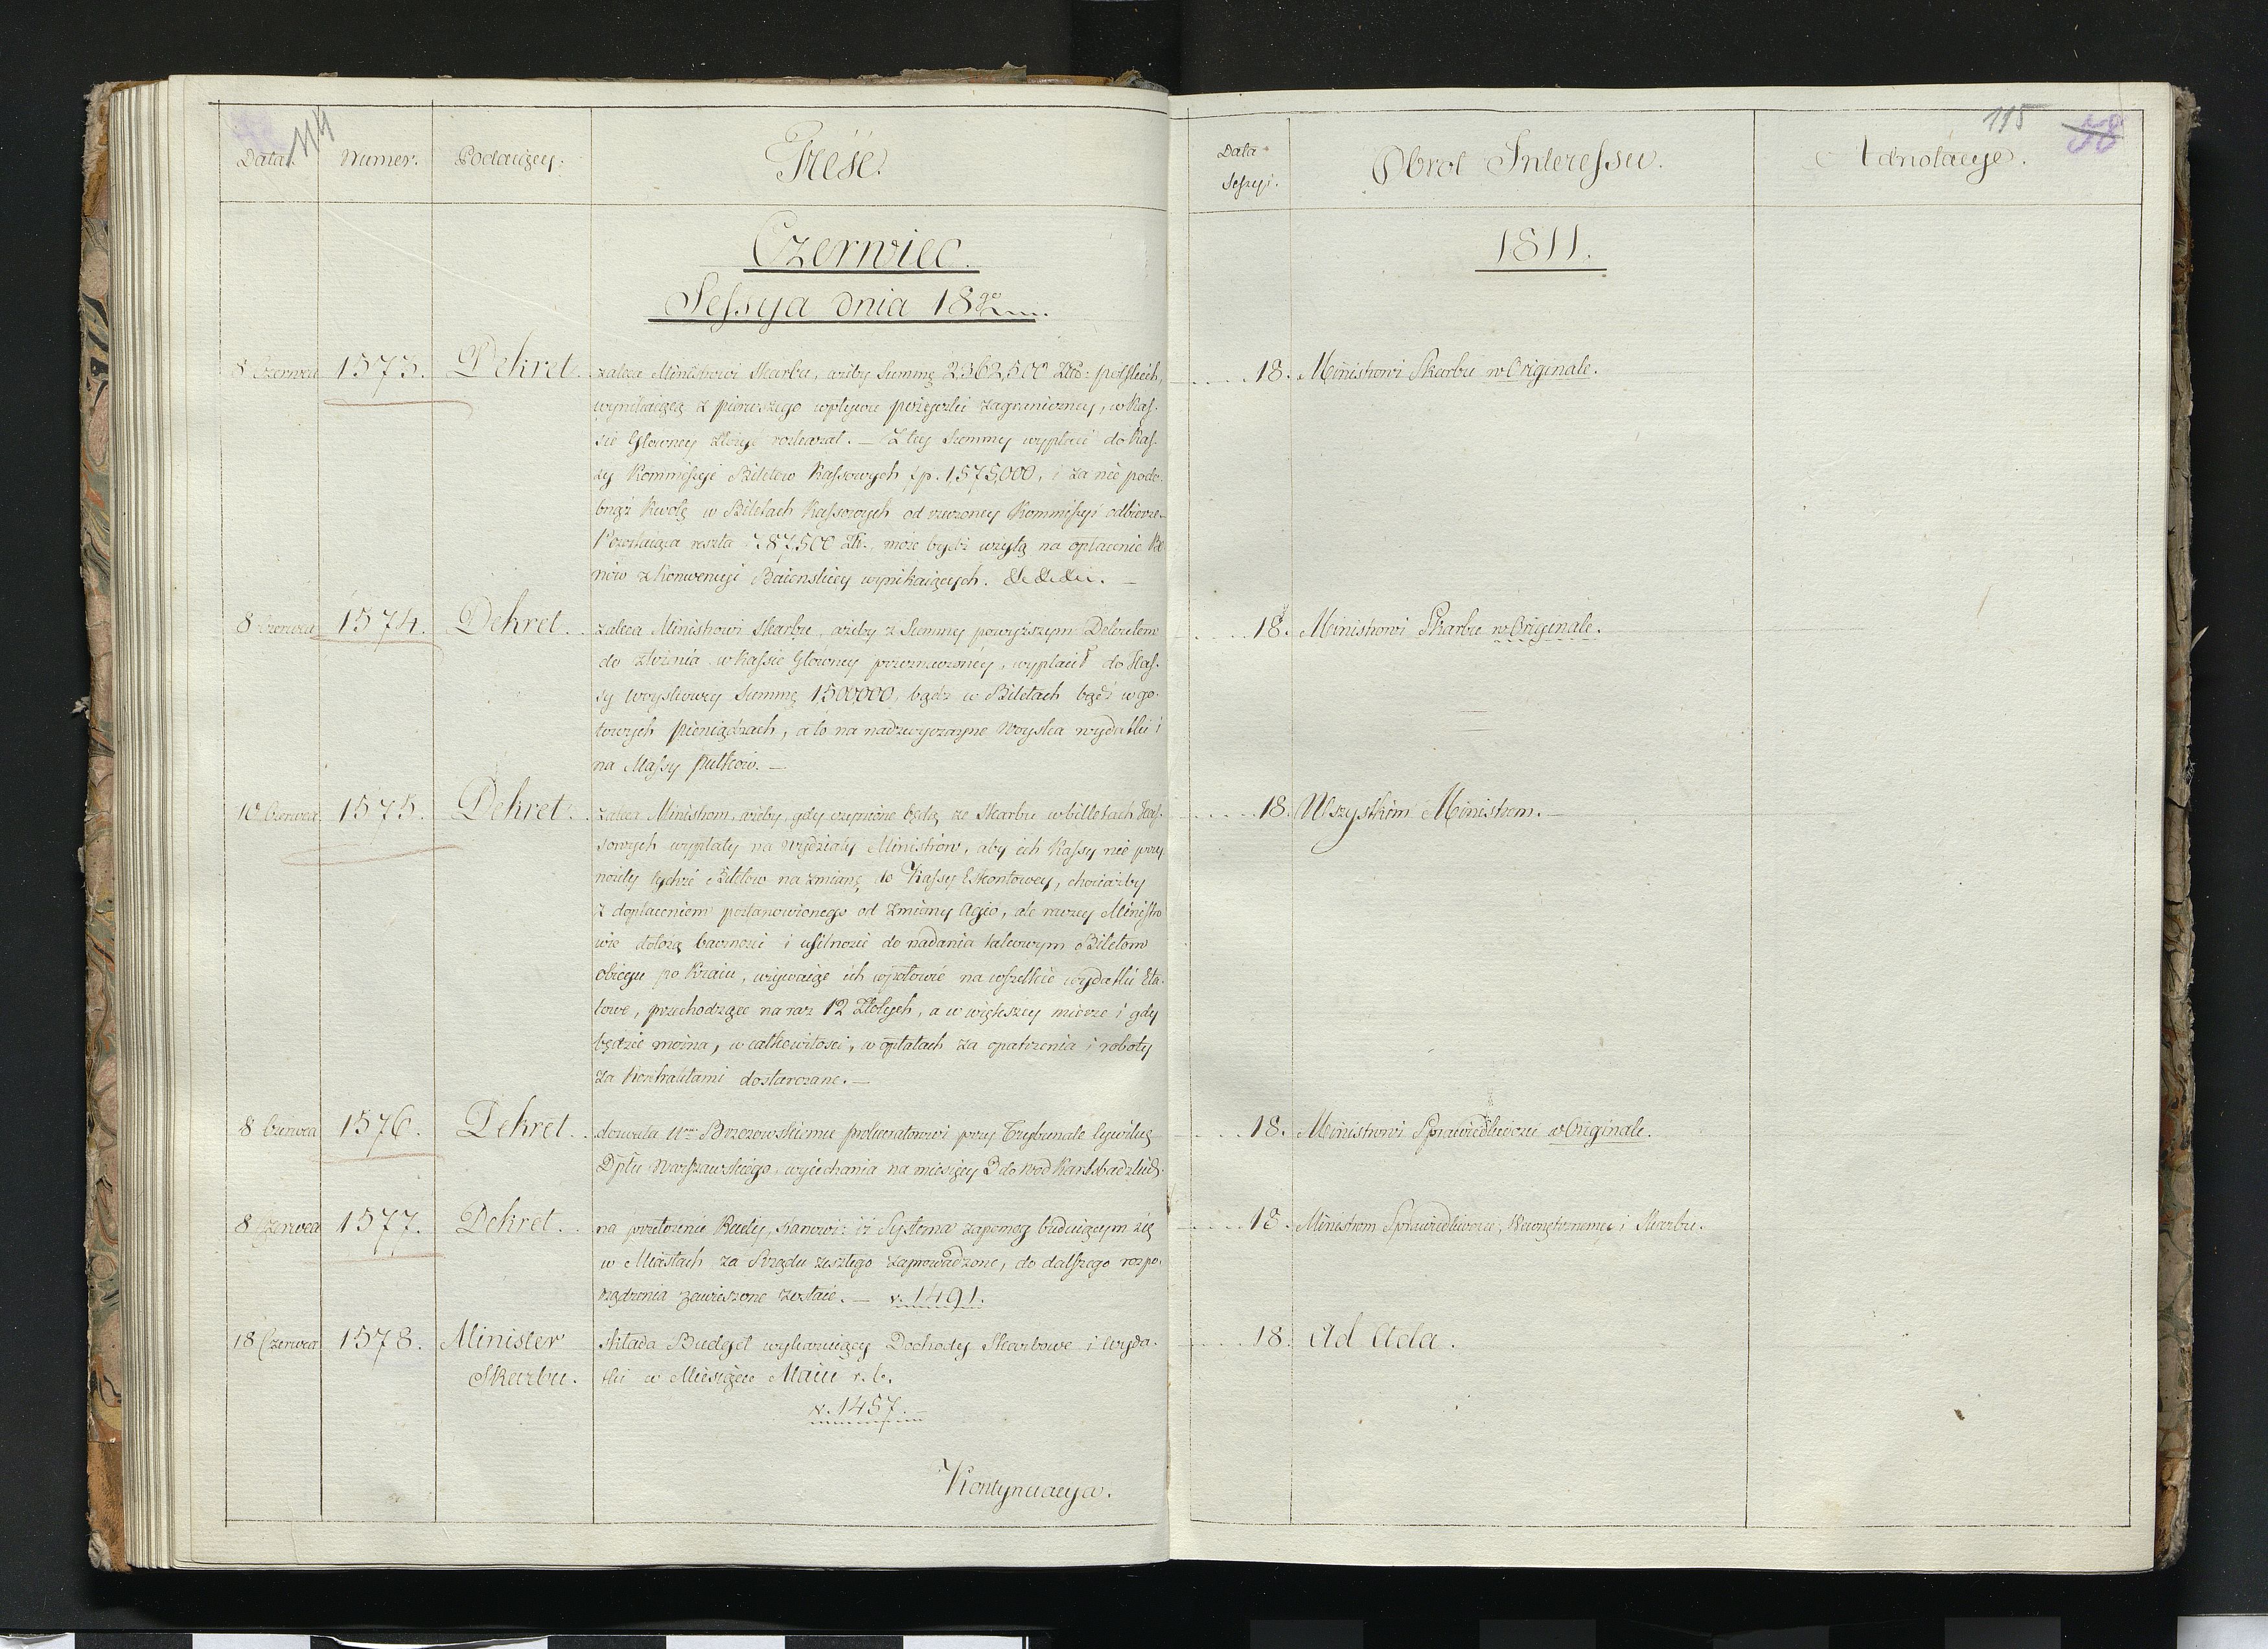 114
Data. Numer. Podaiący. Treść.
Czerwiec.
Sessya dnia 18go
8 Czerwca 1573. Dekret. zaleca Ministrowi Skarbu, ażeby Summę 2362,500 Złło: polskich,
wynikaiącą z pierwszego wpływu pożyczki zagraniczney, w Kas-
sie Głowney złożyć rozkazał. — Z tey Summy wypłaci do Kas-
sy Kommissyi Biletow Kassowych Zp. 1,575,000, i za nie podo-
bnąż kwotę w Biletach Kassowych od rzeczoney Kommissyi odbierze.
Pozostaiąca reszta 787,500 Zł., może bydź użytą na opłacenie
nów z Konwencyi Baionskiey wynikaiących. &c &c &c. —
8 Czerwca 1574. Dekret. zaleca Ministrowi Skarbu, ażeby z Summy powyższym Dekretem
do złożenia w Kassie Głowney przeznaczoney, wypłacił do Kas-
sy Woyskowey Summę 1500,000, bądź w Biletach bądź w go-
towych pieniądzach, a to na nadzwyczayne Woyska wydatki i
na Massy pułkow. —
10 Czerwca 1575. Dekret. zaleca Ministrom, ażeby, gdy czynione będą ze Skarbu w billetach Kas-
sowych wypłaty na Wydziały Ministrów, aby ich Kassy nie przy-
nosiły tychże Biletow na zmianę do Kassy Eskontowey, chociażby
z dopłaceniem postanowionego od zmiany Agio, ale raczey Ministro
wie dołożą baczności i usilności do nadania takowym Biletom
obiegu po Kraiu, używaiąc ich w połowie na wszelkie wydatki Eta-
towe, przechodzące na raz 12 Złotych, a w większey mierze i gdy
będzie można, w całkowitości, w opłatach za opatrzenia i roboty
za Kontraktami dostarczane. —
8 Czerwca 1576. Dekret. dozwala Ur. Brzozowskiemu prokuratorowi przy Trybunale Cywilny
Dptu Warszawskiego, wyiechania na miesięcy 3 do wod Karlsbadzkich.
8 Czerwca 1577. Dekret. na przełożenie Rady, stanowi: iż Systema zapomog buduiącym się
w Miastach za Rządu zeszłego zaprowadzone, do dalszego rozpo-
rządzenia zawieszone zostaie. — v. 1491.
18 Czerwca 1578. Minister składa Budget wykazuiący Dochody Skarbowe i wyda-
Skarbu. tki w Miesiącu Maiu r. b.
v. 1457.
Kontynuacya.
115 58
Data Sessyi. Obrot Interessu. Adnotacye.
1811.
18. Ministrowi Skarbu w Originale.
18. Ministrowi Skarbu w Originale.
18. Wszystkim Ministrom. —
18. Ministrowi Sprawiedliwości w Originale.
18. Ministrom Sprawiedliwości, Wewnętrznemu i Skarbu.
18. Ad Acta.